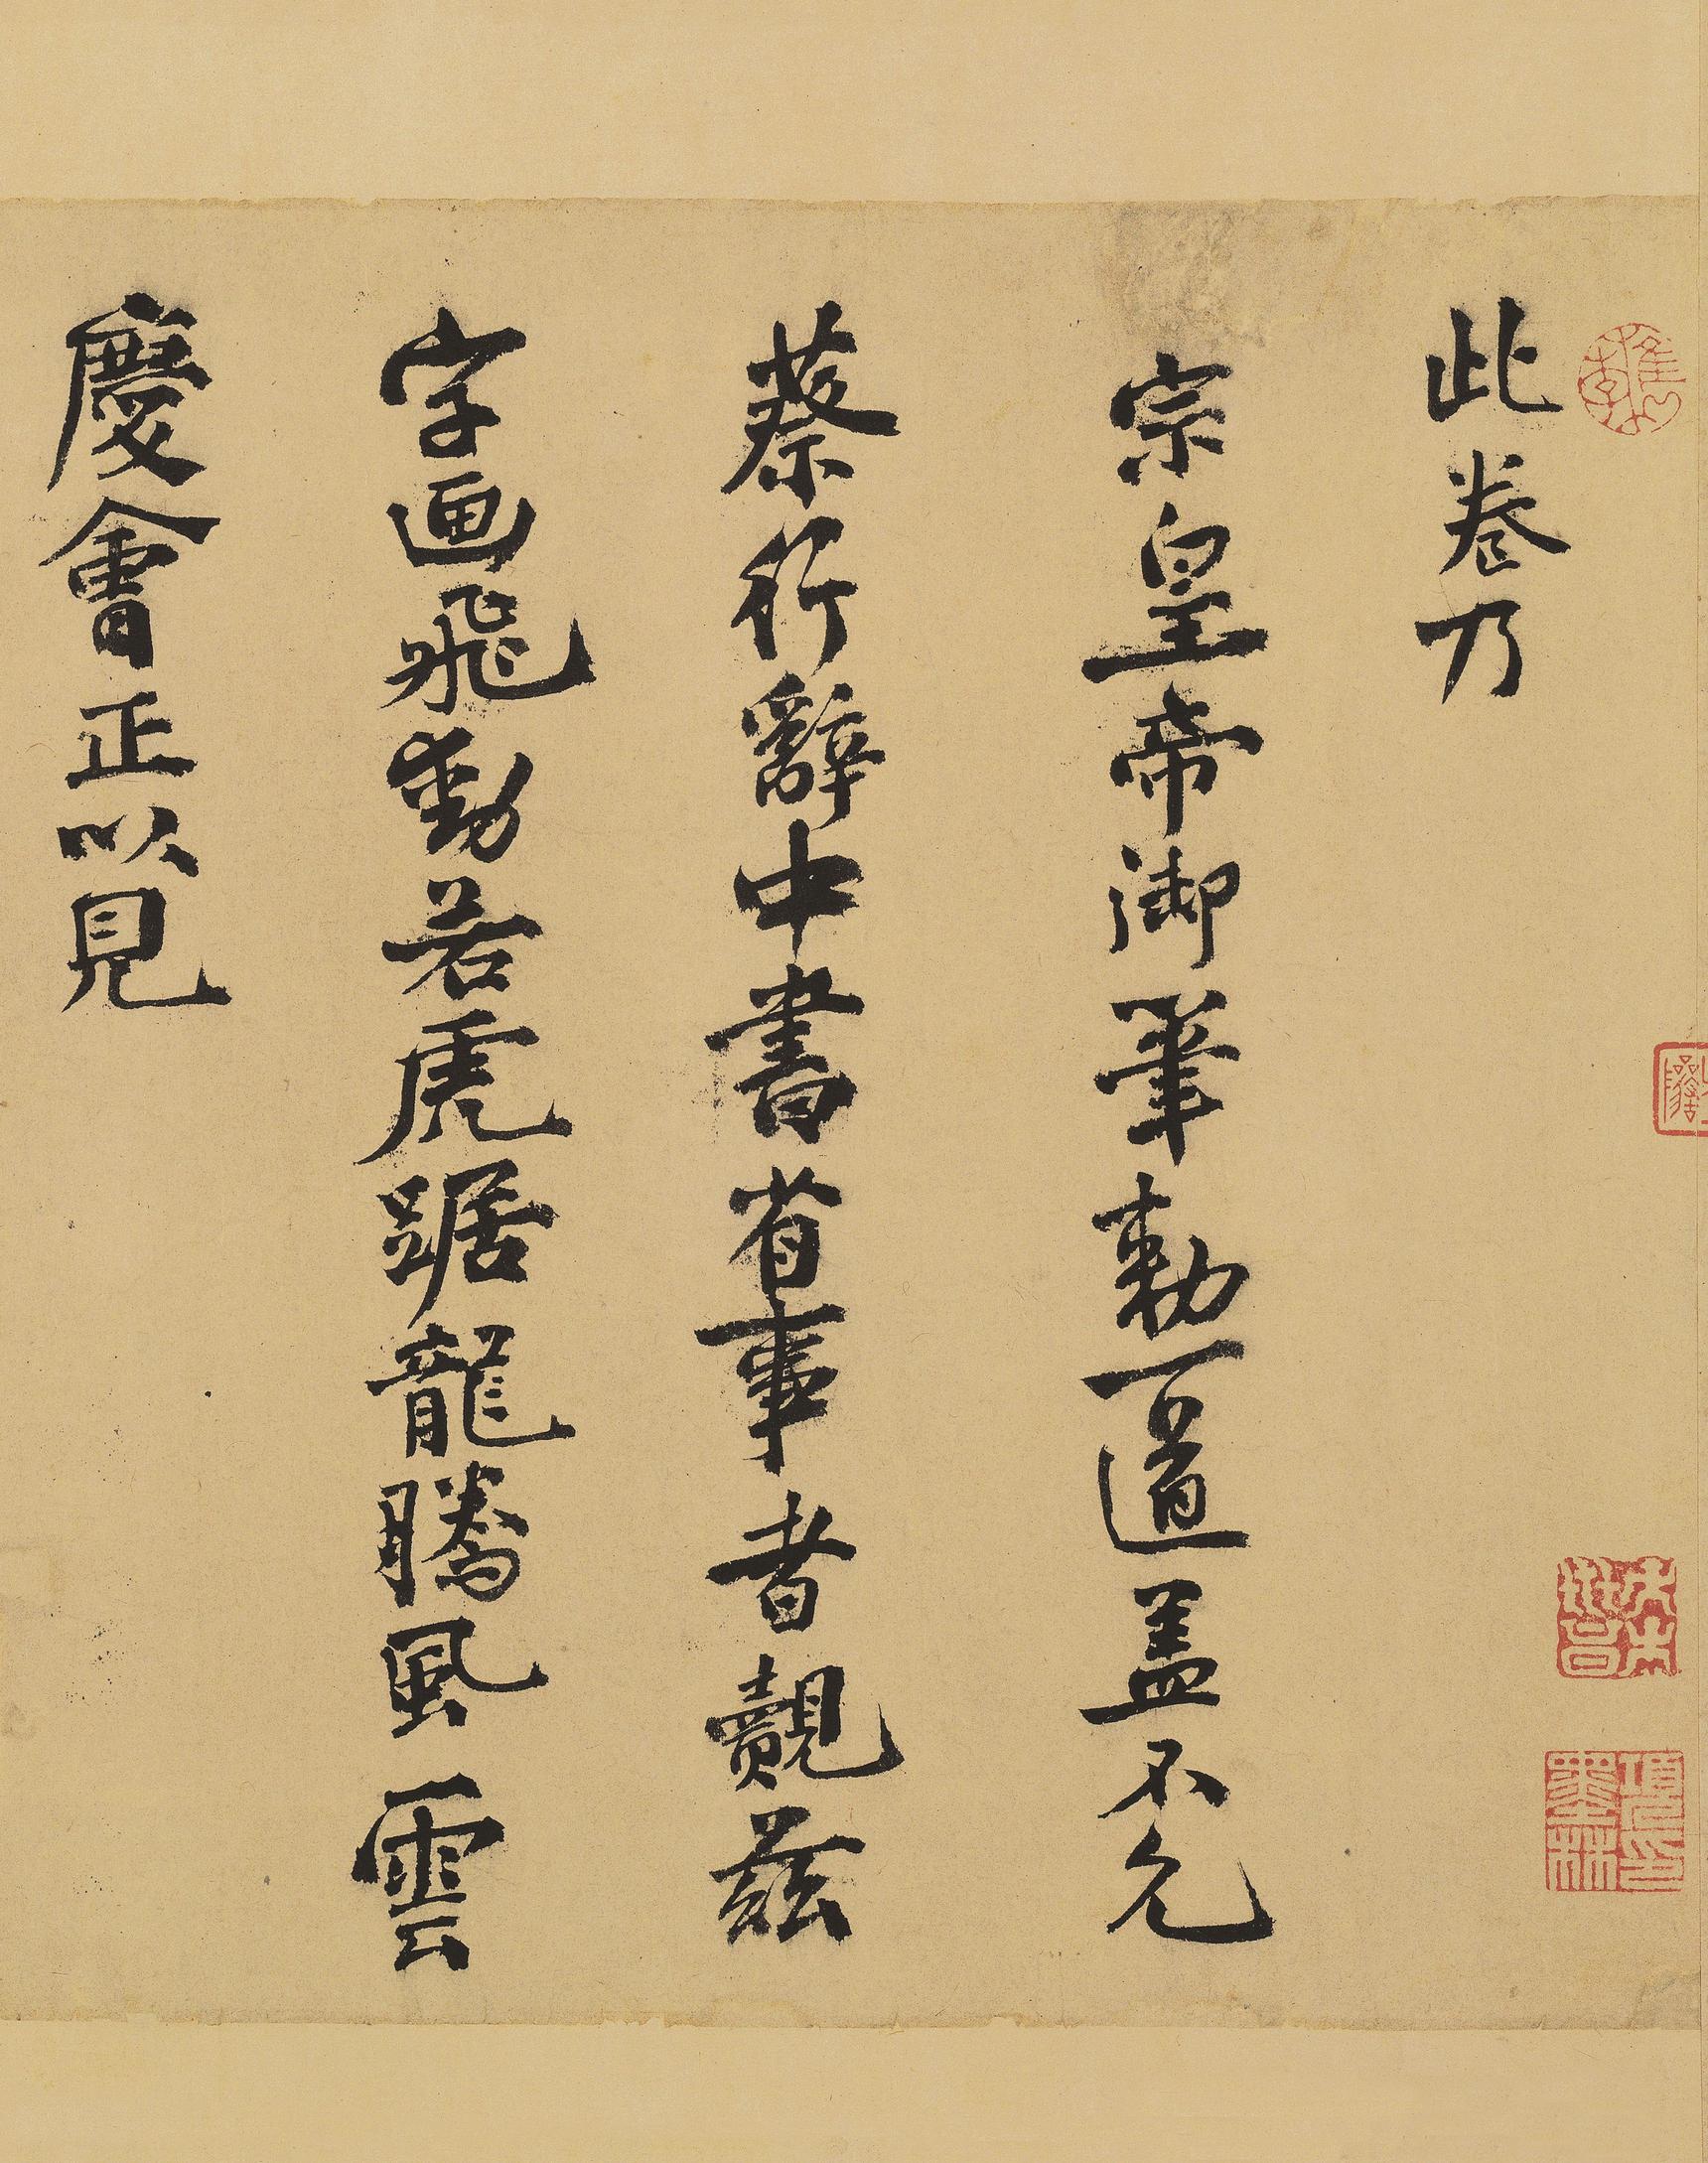 此卷乃
宗皇帝御筆勅一道盖不允
蔡行辭中書省事者覿茲
字画飛動若虎踞龍騰風雲
慶會正以見
項墨林印